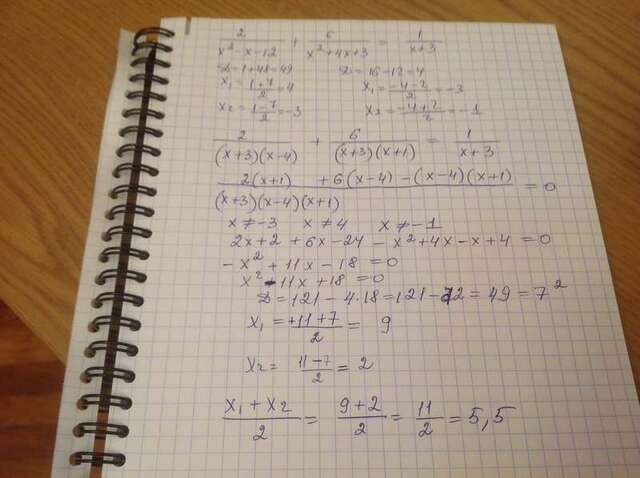 2/(x²-x-12) + 6/(x²+4x+3) = 1/(x+3)
D=1+48=49 D=16-12=4
x₁=(1+7)/2=4 x₁=(-4-2)/2=-3
x₂=(1-7)/2=-3 x₂=(-4+2)/2=-1
2/((x+3)(x-4)) + 6/((x+3)(x+1)) = 1/(x+3)
(2(x+1) +6(x-4) -(x-4)(x+1))/((x+3)(x-4)(x+1)) = 0
x≠-3 x≠4 x≠-1
2x+2 +6x-24 -x²+4x-x+4 =0
-x²+11x-18=0
x²-11x+18=0
D=121-4·18=121-72=49=7²
x₁=(+11+7)/2= 9
x₂=(11-7)/2=2
(x₁+x₂)/2=(9+2)/2=11/2=5,5